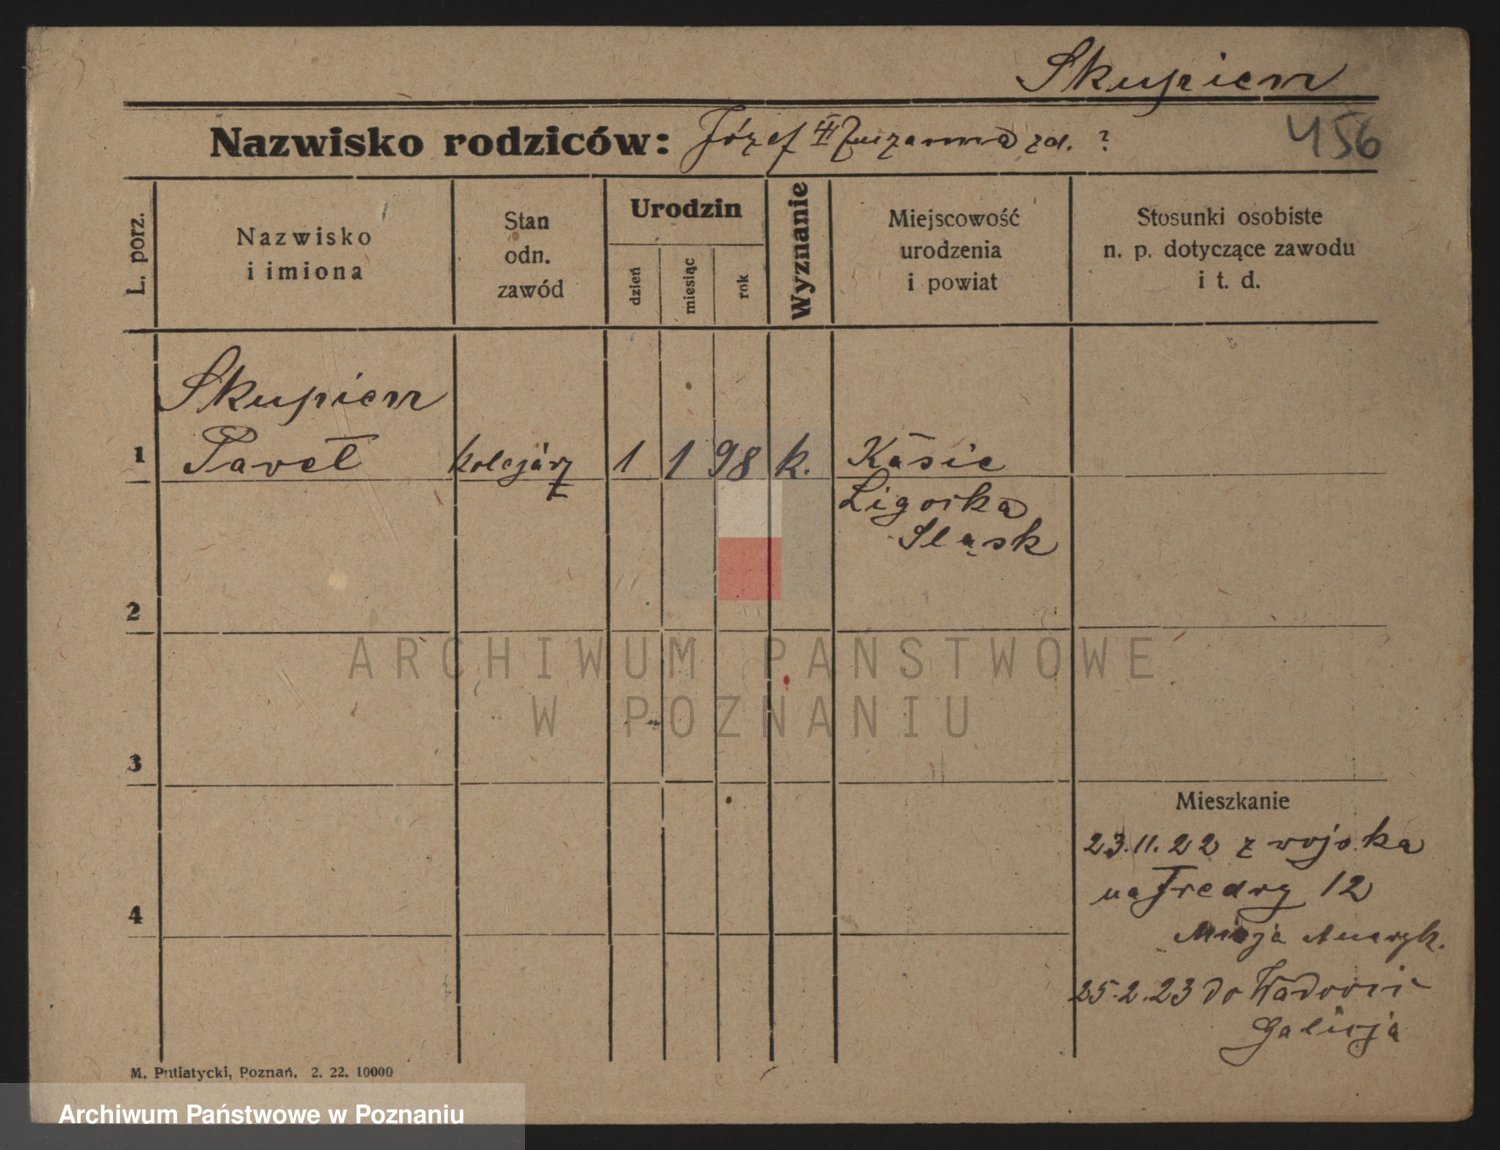 Skupien
Nazwisko rodziców: Józef Zuzanna zd. ?
456
L. porz.
Nazwisko
i imiona
Stan
odn.
zawód
Urodzin
dzień
miesiąc
rok
Wyznanie
Miejscowość
urodzenia
i powiat
Stosunki osobiste
n. p. dotyczące zawodu
i t. d.
Skupien
1 Paveł kolejarz 1 1 98 k. Kasie
Ligorka
Sląsk
2
3
4
Mieszkanie
23.11.22 z wojska
na Fredry 12
Misja
25.2.23 do
Galicja
M. Putiatycki, Poznań. 2. 22. 10000
ARCHIWUM PAŃSTWOWE
W POZNANIU
Archiwum Państwowe w Poznaniu